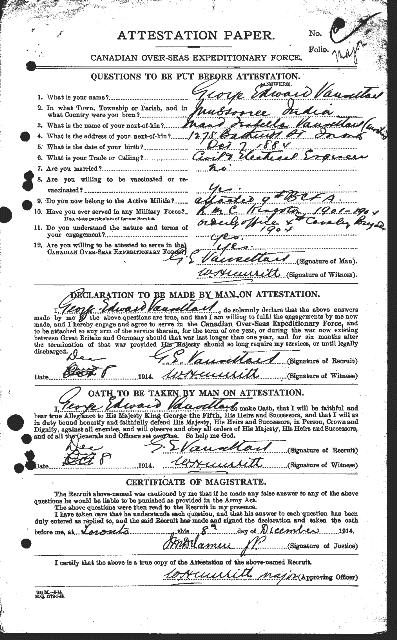 ATTESTATION PAPER.
No.
Folio.
CANADIAN OVER-SEAS EXPEDITIONARY FORCE.
QUESTIONS TO BE PUT BEFORE ATTESTATION.
(ANSWERS)
1. What is your name? George Edward Vansittart
2. In what Town, Township or Parish, and in what Country were you born? Mussoorie India
3. What is the name of your next-of-kin? Vansittart
4. What is the address of your next-of-kin? 1278
5. What is the date of your birth? Dec 7, 1884
6. What is your Trade or Calling? Civil & Electrical Engineer
7. Are you married? no
8. Are you willing to be vaccinated or re-vaccinated? Yes
9. Do you now belong to the Active Militia?
10. Have you ever served in any Military Force? R.M.C. Kingston 1901-1904
If so, state particulars of former Service.
11. Do you understand the nature and terms of your engagement? Yes.
12. Are you willing to be attested to serve in the CANADIAN OVER-SEAS EXPEDITIONARY FORCE? Yes.
G E Vansittart (Signature of Man).
(Signature of Witness).
DECLARATION TO BE MADE BY MAN ON ATTESTATION.
I, George Edward Vansittart, do solemnly declare that the above answers
made by me to the above questions are true, and that I am willing to fulfil the engagements by me now
made, and I hereby engage and agree to serve in the Canadian Over-Seas Expeditionary Force, and to
be attached to any arm of the service therein, for the term of one year, or during the war now existing
between Great Britain and Germany should that war last longer than one year, and for six months after
the termination of that war provided His Majesty should so long require my services, or until legally
discharged.
G.E. Vansittart (Signature of Recruit)
Date Dec 8 1914. (Signature of Witness)
OATH TO BE TAKEN BY MAN ON ATTESTATION.
I, George Edward Vansittart, do make Oath, that I will be faithful and
bear true Allegiance to His Majesty King George the Fifth, His Heirs and Successors, and that I will as
in duty bound honestly and faithfully defend His Majesty, His Heirs and Successors, in Person, Crown and
Dignity, against all enemies, and will observe and obey all orders of His Majesty, His Heirs and Successors,
and of all the Generals and Officers set over me. So help me God.
G.E. Vansittart (Signature of Recruit)
Date Dec 8 1914. (Signature of Witness)
CERTIFICATE OF MAGISTRATE.
The Recruit above-named was cautioned by me that if he made any false answer to any of the above
questions he would be liable to be punished as provided in the Army Act.
The above questions were then read to the Recruit in my presence.
I have taken care that he understands each question, and that his answer to each question has been
duly entered as replied to, and the said Recruit has made and signed the declaration and taken the oath
before me, at Toronto this 8th day of December 1914.
J.P. (Signature of Justice)
I certify that the above is a true copy of the Attestation of the above-named Recruit.
Major (Approving Officer)